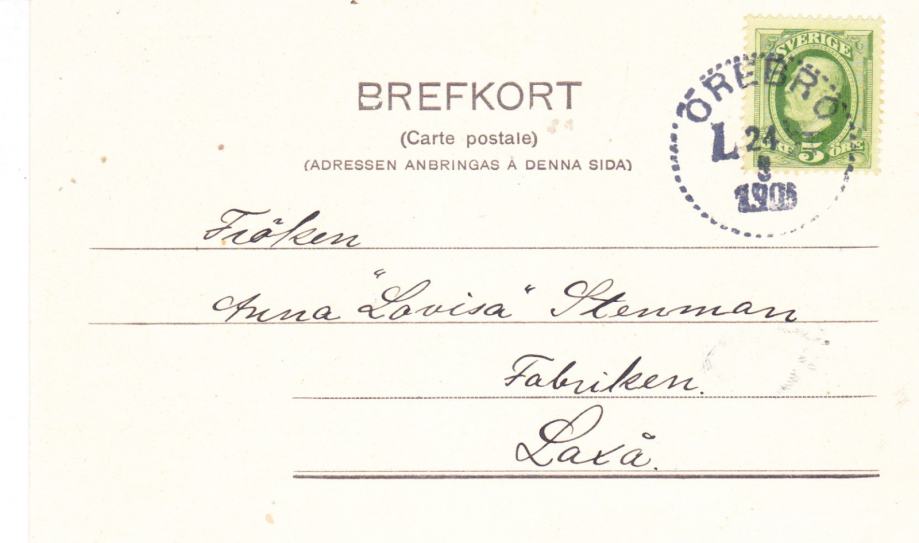 SVERIGE
5 ÖRE
ÖREBRO
L 24
190
BREFKORT
(Carte postale)
(ADRESSEN ANBRINGAS Å DENNA SIDA)
Fröken
Anna "Lovisa" Stenman
Fabriken.
Laxå.